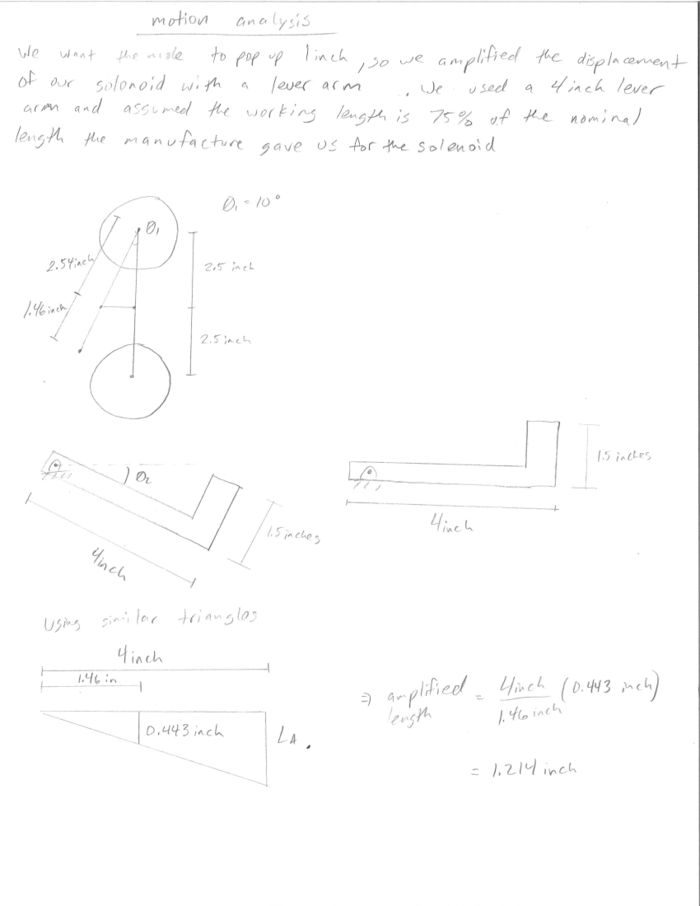 motion analysis
We want the mole to pop up 1inch, so we amplified the displacement
of our solonoid with a lever arm . We used a 4inch lever
arm and assumed the working length is 75% of the nominal
length the manufacture gave us for the solenoid
θ₁ = 10°
θ₁
2.54inch
2.5 inch
1.46inch
2.5 inch
θ₂
1.5 inches
4inch
1.5 inches
4inch
Using similar triangles
4inch
1.46 in
0.443 inch
LA.
⇒ amplified length = 4inch / 1.46 inch (0.443 inch)
= 1.214 inch